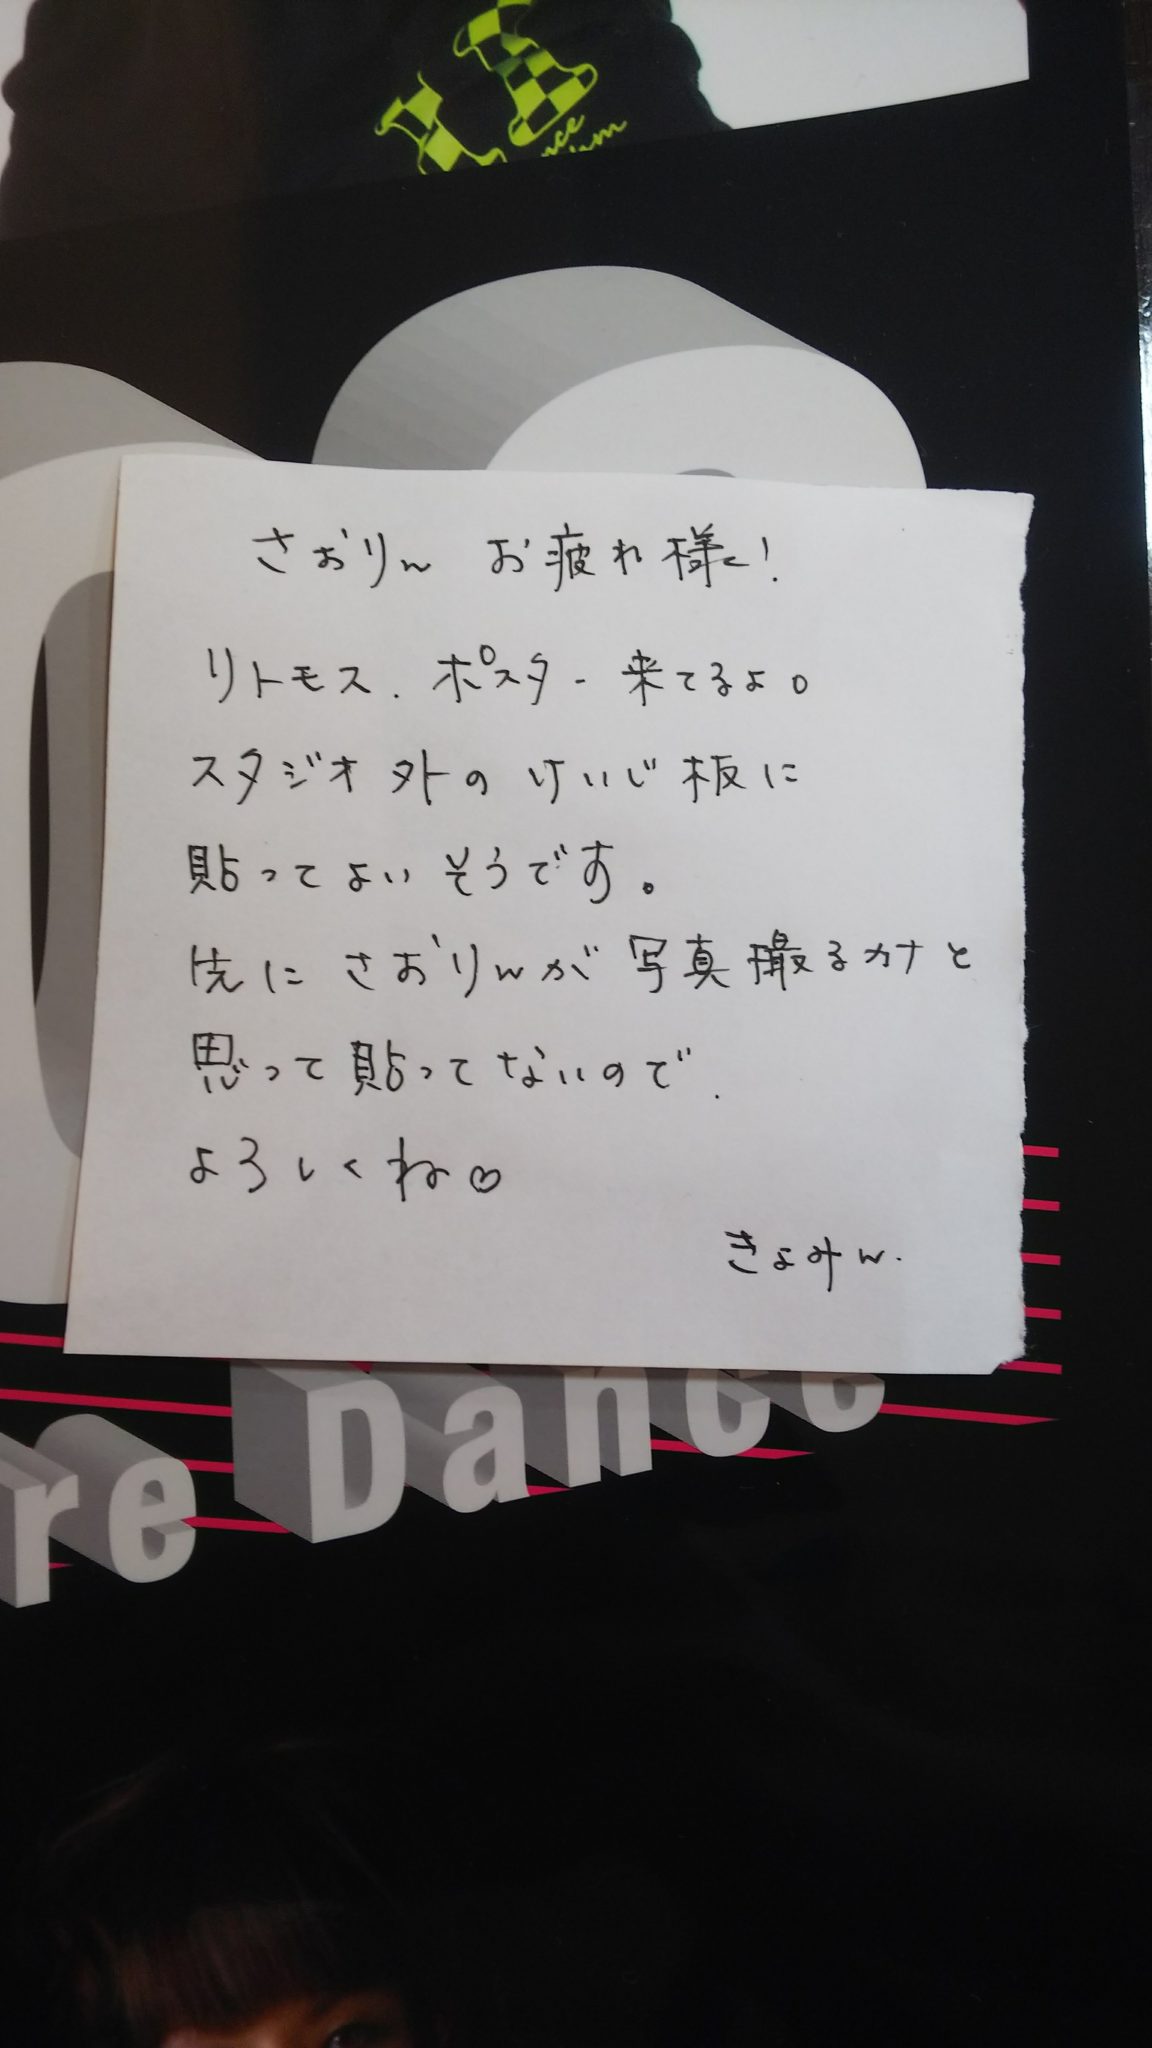 さおりん お疲れ様!
リトモス. ポスター 来てるよ。
スタジオ外の けいじ板に
貼ってよい そうです。
先に さおりんが 写真撮るカナと
思って 貼ってないので.
よろしくね♡
きよみん.
re Dance